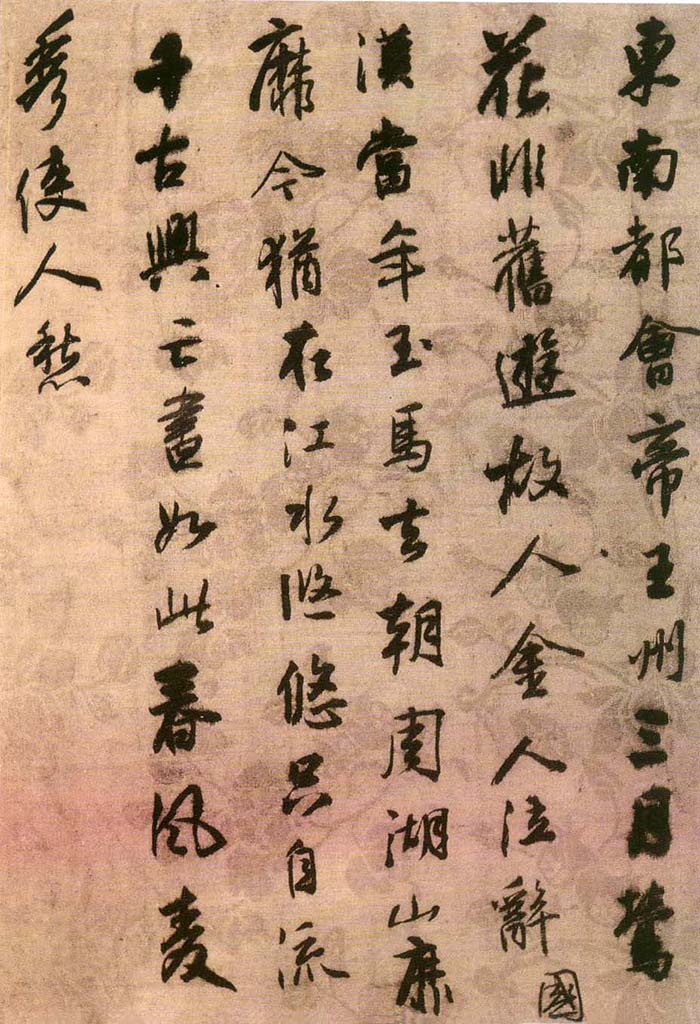 東南都會帝王州三月鶯
花非舊遊故人金人泣辭
國
漢當年玉馬去朝周湖山靡
靡今猶在江水悠悠只自流
千古興亡盡如此春風麥
秀使人愁